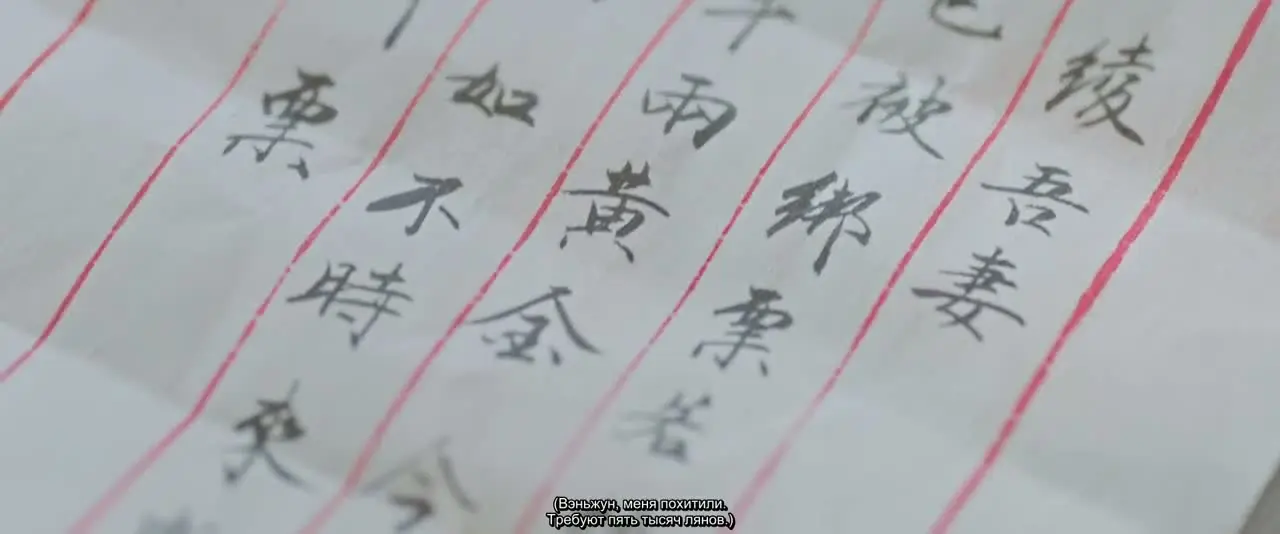 綾吾妻
已被綁票若
千兩黃金今
如不時來
票
(Вэньжун, меня похитили.
Требуют пять тысяч лянов.)